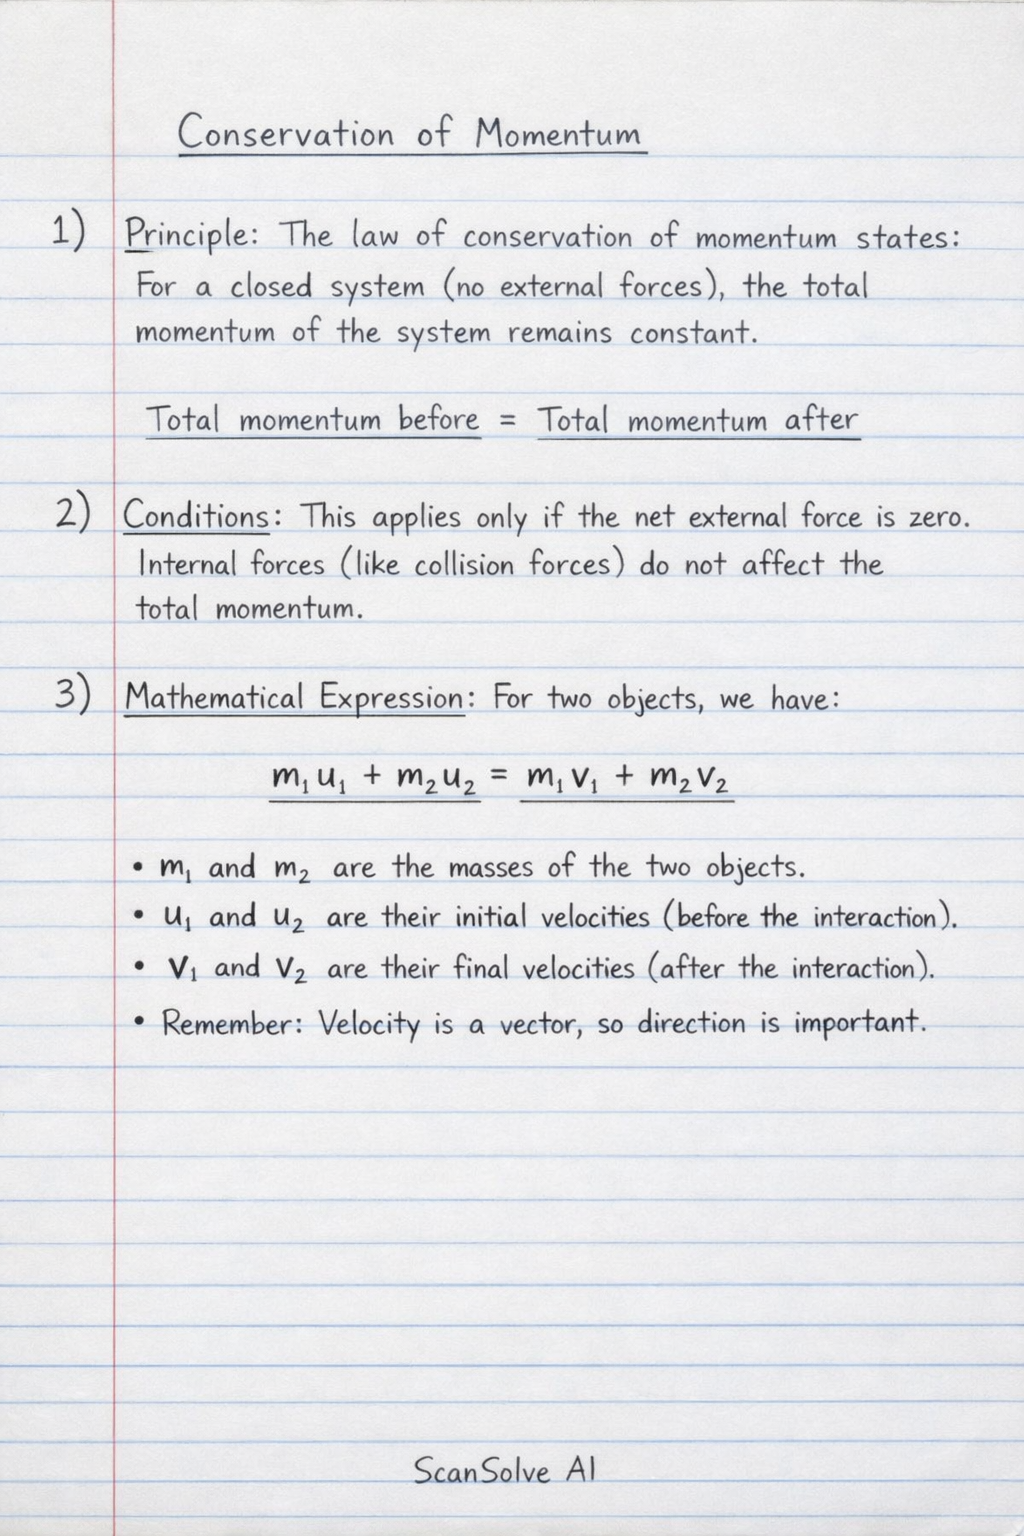 Conservation of Momentum
1) Principle: The law of conservation of momentum states:
For a closed system (no external forces), the total
momentum of the system remains constant.
Total momentum before = Total momentum after
2) Conditions: This applies only if the net external force is zero.
Internal forces (like collision forces) do not affect the
total momentum.
3) Mathematical Expression: For two objects, we have:
m₁u₁ + m₂u₂ = m₁v₁ + m₂v₂
• m₁ and m₂ are the masses of the two objects.
• u₁ and u₂ are their initial velocities (before the interaction).
• v₁ and v₂ are their final velocities (after the interaction).
• Remember: Velocity is a vector, so direction is important.
ScanSolve AI